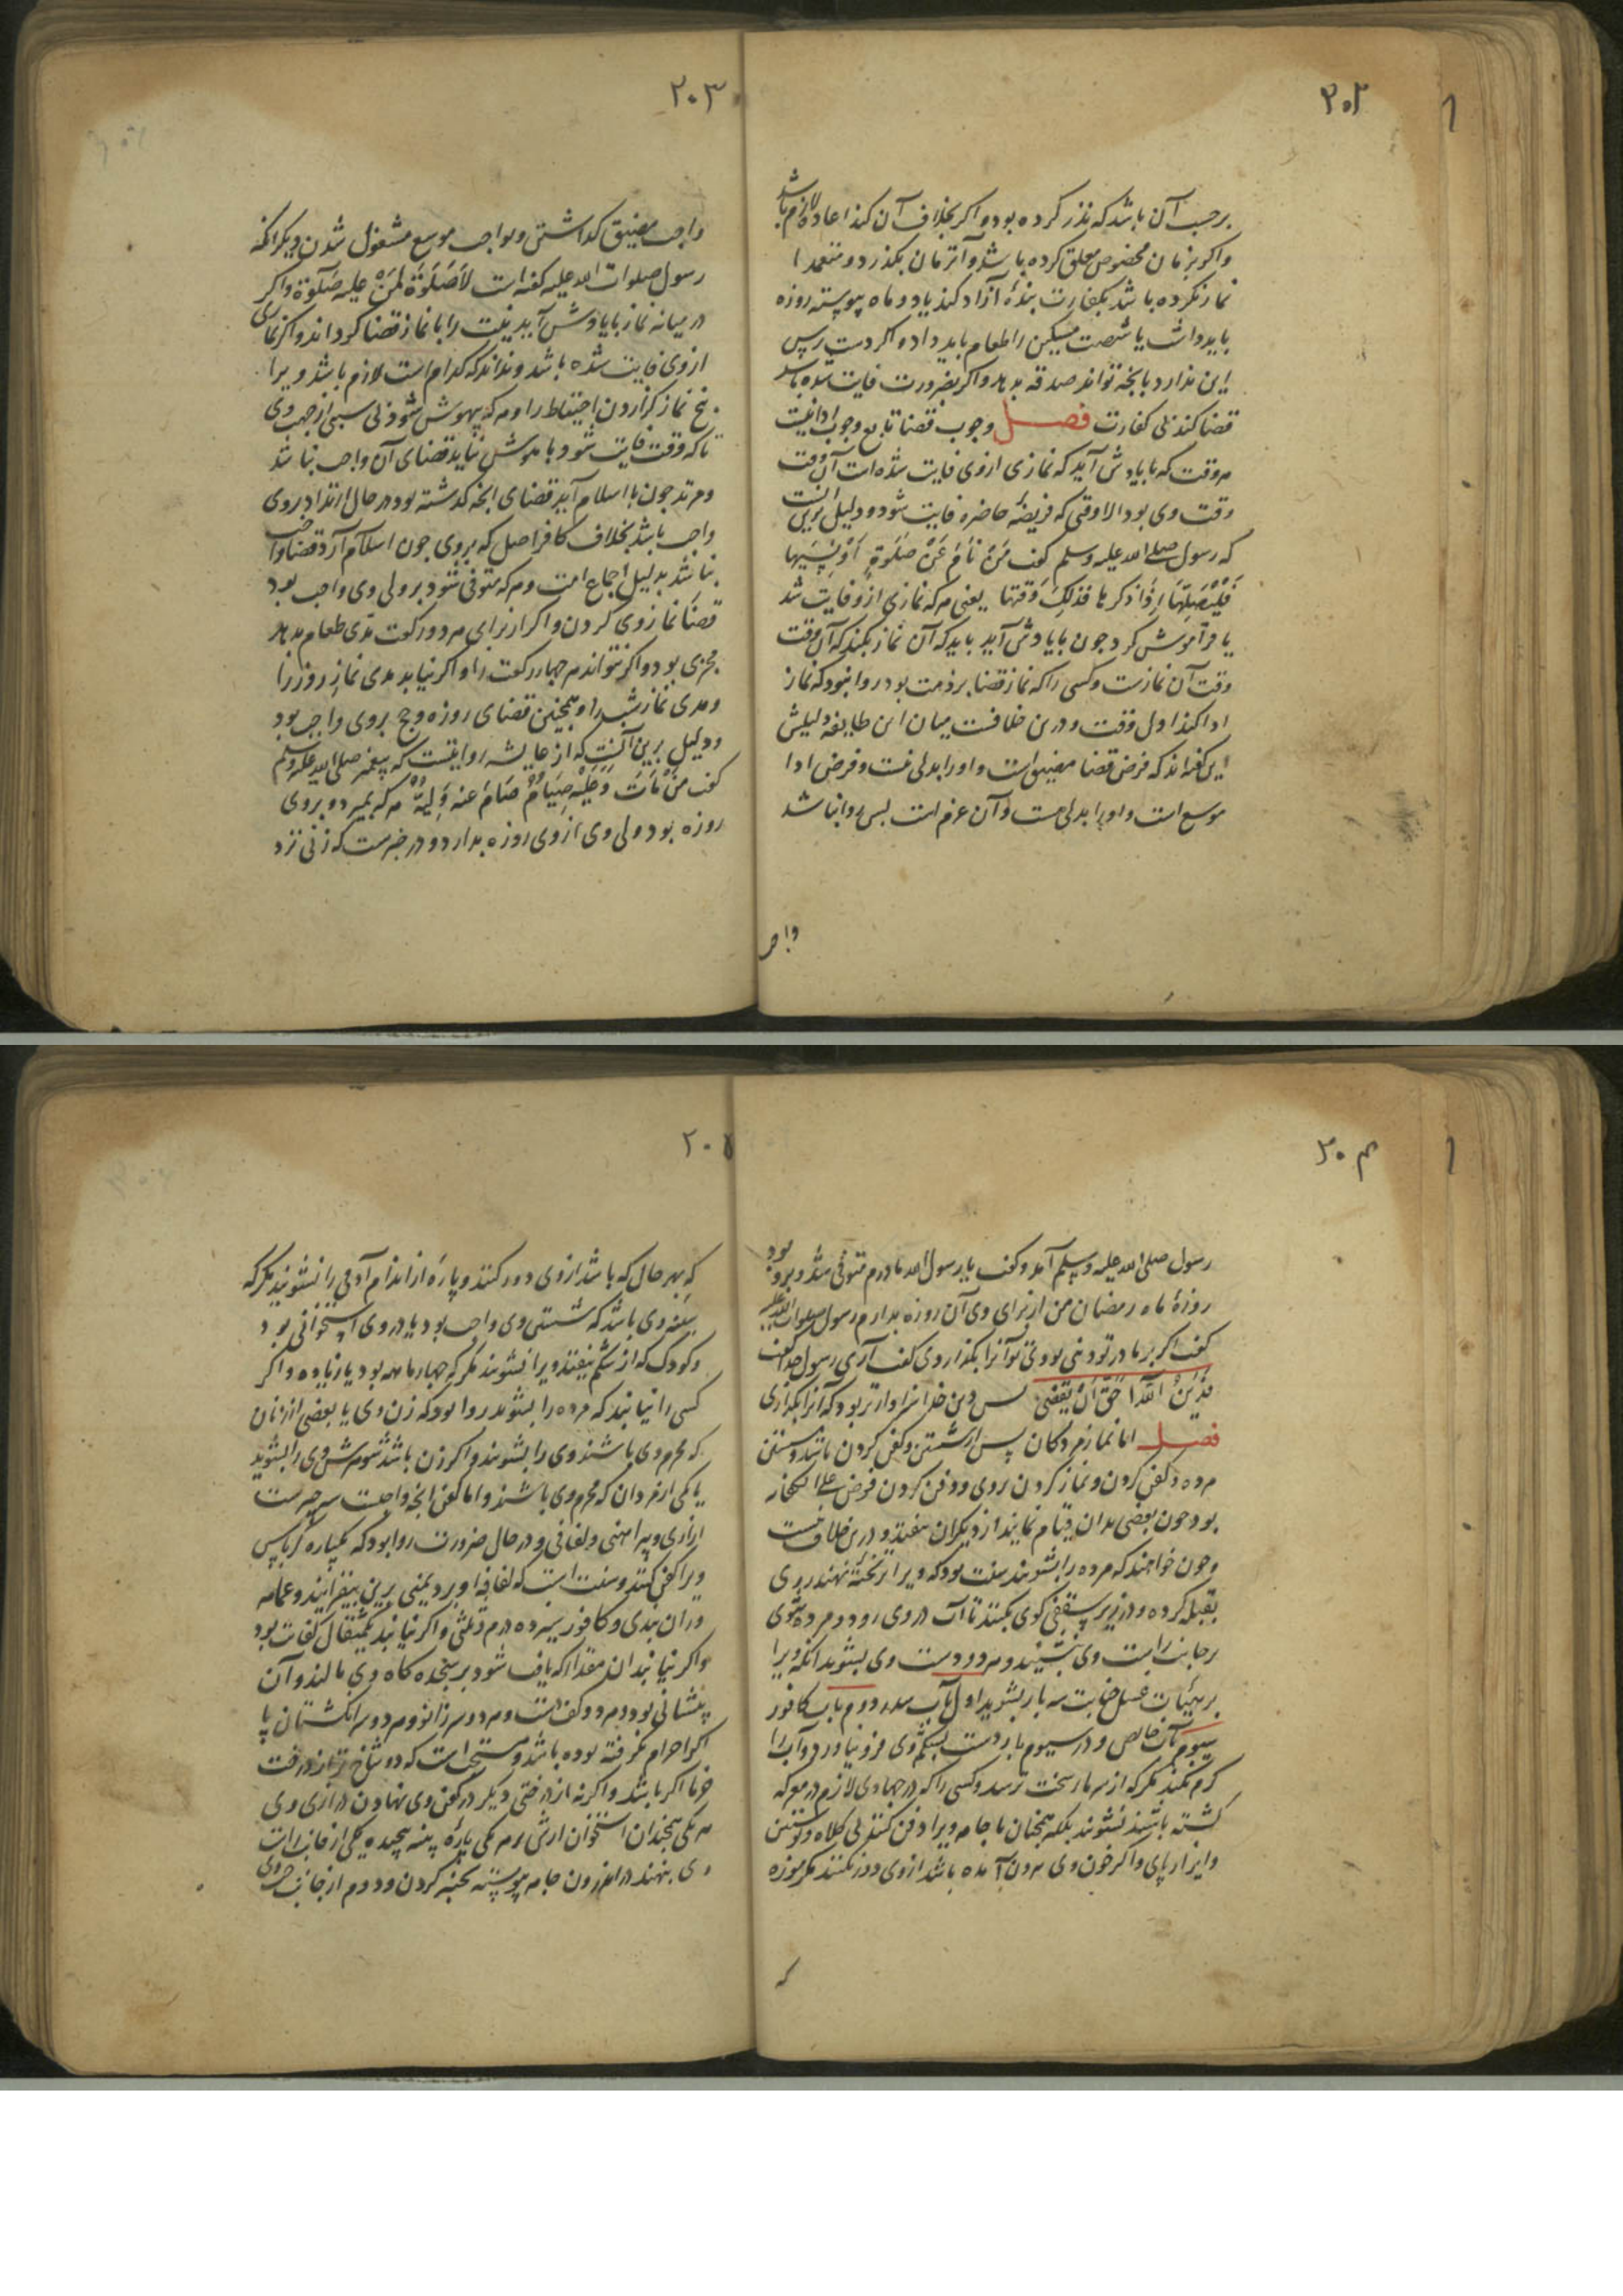 ۲۰۲
برحسب آن باشد که نذر کرده بود و اکر بخلاف آن کند اعاده لازم باشد
واکر بزمان مخصوص معلق کرده باشد و آنزمان بکذرد و متعمدا
نماز نکرده باشد بکفارت بندهٔ آزاد کند یا دو ماه پیوسته روزه
باید داشت یا شصت مسکین را طعام باید داد و اکر دست رس
این ندارد بانچه تواند صدقه بدهد و اکر بضرورت فایت شده باشد
قضا کند بی کفارت فصل وجوب قضا تابع وجوب ادا نیست
هر وقت که بایادش آید که نمازی از وی فایت شده است آن وقت
وقت وی بود الا وقتی که فریضهٔ حاضره فایت شود و دلیل برین آنست
که رسول صلی الله علیه وسلم کفت مَنْ نَامَ عَنْ صَلٰوةٍ اَوْ نَسِیَها
فَلْیُصَلِّهَا اِذَا ذکرها فذلِکَ وَقتها یعنی هر که نمازی ازو فایت شد
یا فراموش کرد جون بایادش آید باید که آن نماز بکند که آن وقت
وقت آن نمازست و کسی را که نماز قضا برذمت بود روا نبود که نماز
ادا کند اول وقت و درین خلافست میان این طایفه دلیلش
این کفته اند که فرض قضا مضیق است و او را بدلی نیست و فرض ادا
موسع است و او را بدلی هست و آن عزم است بس روا نباشد
واجب
۲۰۳
واجب مضیق کذاشتن و بواجب موسع مشغول شدن و دیکر آنکه
رسول صلوات الله علیه کفته است لاَصَلَوةَ لِمَنْ علیه صَلَوٰة و اکر
در میانه نماز بایادش آید نیت را با نماز قضا کرداند و اکر نمازی
از وی فایت شده باشد و نداند که کدام است لازم باشد ویرا
پنج نماز کزاردن احتیاط را و هر که بیهوش شود نی سببی از جهت وی
تا که وقت فایت شود و با هوش نیاید قضای آن واجب نباشد
و مرتد جون با اسلام آید قضای آنچه کذشته بود در حال ارتداد بروی
واجب باشد بخلاف کافر اصل که بروی جون اسلام آرد قضا واجب
نباشد بدلیل اجماع امت و هر که متوفی شود بر ولی وی واجب بود
قضا نماز وی کردن و اکر از برای هر دو رکعت مدی طعام بدهد
مجزی بود و اکر نتواند هر جهار رکعت را و اکر نیابد مدی نماز روز را
و مدی نماز شب را و همچنین قضای روزه و حج بروی واجب بود
و دلیل برین آنست که از عایشه روایتست که پیغمبر صلی الله علیه وسلم
کفت مَنْ مَاتَ وَ عَلَیْهِ صِیَامٌ صَامَ عنه وَلِیُّهُ هر که بمیرد و بروی
روزه بود ولی وی از وی روزه بدارد و در خبرست که زنی نزد
۲۰۴
رسول صلی الله علیه وسلم آمد و کفت یا رسول الله مادرم متوفی شد و برو بود
روزهٔ ماه رمضان من از برای وی آن روزه بدارم رسول صلوات الله علیه
کفت اکر بر مادر تو دینی بودی تو آنرا بکذاردی کفت آری رسول خدا کفت
فَدَیْنُ اللّٰهِ اَحَقّ اَنْ یُقضٰی بس دین خدا سزاوارتر بود که آنرا بکذاری
فصل اما نماز مردکان پس از شستن و کفن کردن باشد و شستن
مرده و کفن کردن و نماز کردن بروی و دفن کردن فرض علی الکفایه
بود جون بعضی بدان قیام نمایند از دیکران بیفتد و درین خلاف نیست
و جون خواهند که مرده را بشویند سنت بود که ویرا بر تختهٔ نهند روی
بقبله کرده و در زیر سقفی کوی بکنند تا آب در وی رود و مرده شوی
بر جانب راست وی بنشیند و هر دو دست وی بشوید آنکه ویرا
بر هیئات غسل جنابت سه بار بشوید اول بآب سدر دوم بآب کافور
سیوم بآب خالص و در سیوم بار دست بشکم وی فرو نیاورد و آب را
کرم نکند مکر که از سرما سخت ترسد و کسی را که در جهادی لازم در معرکه
کشته باشند نشویند بلکه همچنان با جامه ویرا دفن کنند بی کلاه و پوستین
و ایزار پای و اکر خون وی برون آمده باشد از وی دور نکنند مکر موزه
که
۲۰۵
که بهر حال که باشد از وی دور کنند و پارهٔ از اندام آدمی را نشویند مکر که
سینه وی باشد که شستن وی واجب بود یا در وی استخوانی بود
و کودک که از شکم بیفتد ویرا نشویند مکر که جهار ماهه بود یا زیاده و اکر
کسی را نیابند که مرده را بشوید روا بود که زن وی یا بعضی از زنان
که محرم وی باشند وی را بشویند و اکر زن باشد شوهرش وی را بشوید
یا یکی از مردان که محرم وی باشند و اما کفن آنچه واجبست سه چیزست
ازاری و پیراهنی و لفافی و در حال ضرورت روا بود که بیکپاره کرباس
ویرا کفن کنند و سنت است که لفافهٔ او برد یمنی برین بیفزایند و عمامه
و ران بندی و کافور سیزده درم و ثلثی و اکر نیابند یکمثقال کفایت بود
و اکر نیابند آن مقدار که یافت شود بر سجده کاه وی مالند و آن
پیشانی بود و هر دو کف دست و هر دو سر زانو و هر دو سر انکشتان پا
اکر احرام نکرفته بوده باشد و مستحب است که دو شاخ تر از درخت
خرما اکر باشد و اکر نه از درختی دیکر در کفن وی نهادن درازی وی
هر یکی همچندان استخوان ارش بر هر یکی پارهٔ پنبه پیچیده یکی از جانب راست
وی بنهند در اندرون جامه پیوسته بچنبر کردن و دوم از جانب چپ وی